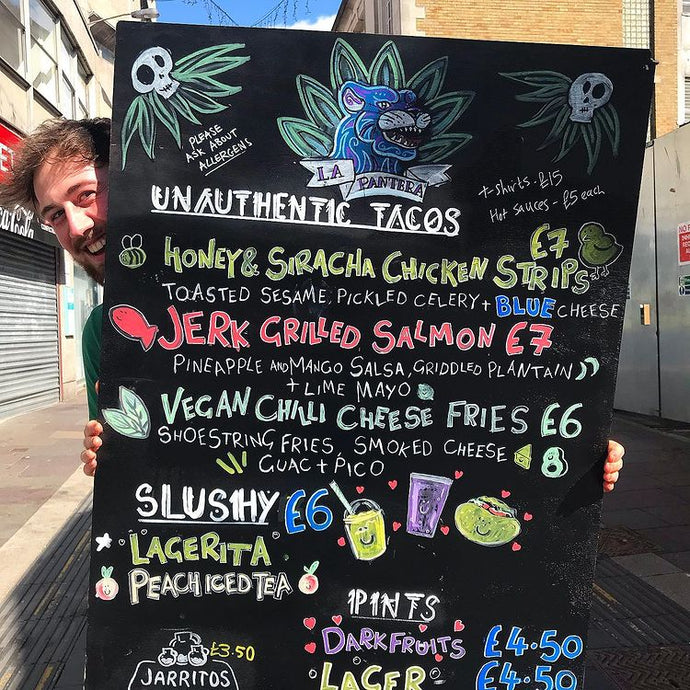 PLEASE
ASK ABOUT
ALLERGENS
LA PANTERA
UNAUTHENTIC TACOS
T-SHIRTS - £15
HOT SAUCES - £5 each
HONEY & SIRACHA CHICKEN STRIPS £7
TOASTED SESAME, PICKLED CELERY + BLUE CHEESE
JERK GRILLED SALMON £7
PINEAPPLE AND MANGO SALSA, GRIDDLED PLANTAIN
+ LIME MAYO
VEGAN CHILLI CHEESE FRIES £6
SHOESTRING FRIES, SMOKED CHEESE
GUAC + PICO
SLUSHY £6
LAGERITA
PEACH ICED TEA
PINTS
DARK FRUITS £4.50
LAGER £4.50
£3.50
JARRITOS